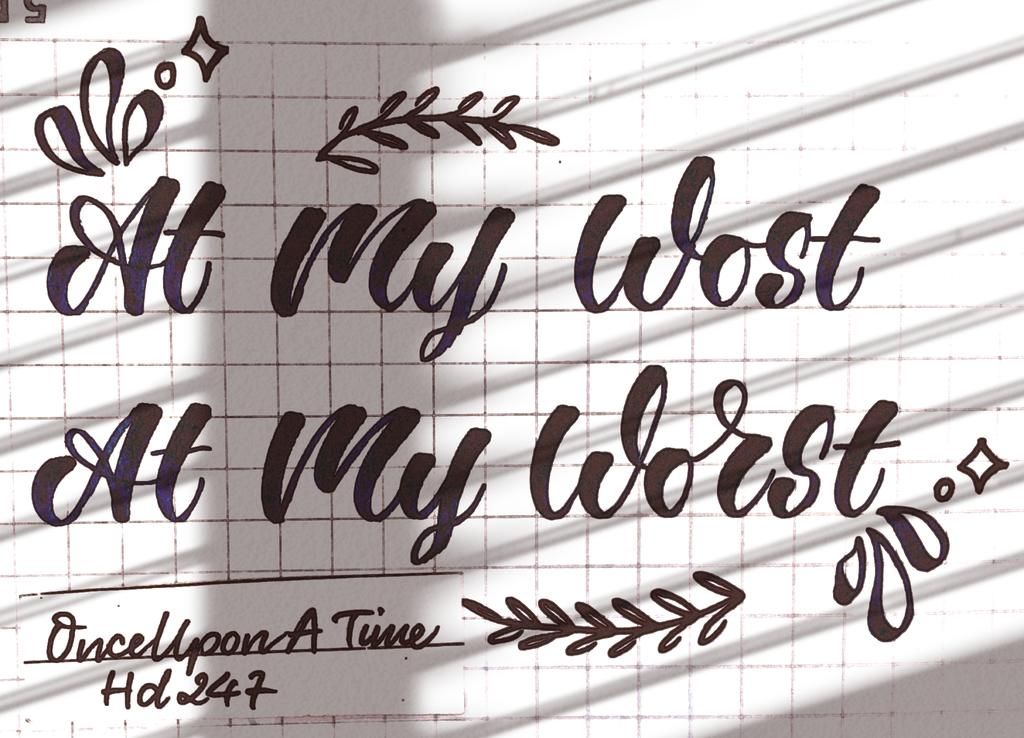 At My Wost
At My Worst
OnceUponA Time
Hd 247